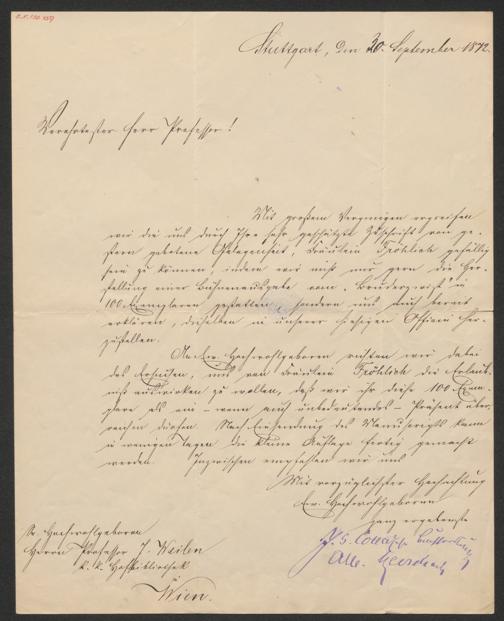 Stuttgart, den 20. September 1872.
Verehrtester Herr Professor!
Mit großem Vergnügen ergreifen
wir die uns durch Ihre sehr geschätzte Zuschrift von ge-
stern gebotene Gelegenheit, Fräulein Fröhlich gefällig
sein zu können, indem wir nicht nur gern die Her-
stellung einer Bühnenausgabe vom „Bruderzwist" in
100 Exemplaren gestatten, sondern uns auch bereit
erklären, dieselben in unserer hiesigen Offizin her-
zustellen.
An Ew. Hochwohlgeboren richten wir dabei
das Ersuchen, uns von Fräulein Fröhlich die Erlaub-
niß auswirken zu wollen, daß wir ihr diese 100 Exem-
plare als ein – wenn auch unbedeutendes – Präsent über-
reichen dürfen. Nach Einsendung des Manuscripts kann
in wenigen Tagen die kleine Auflage fertig gemacht
werden. Inzwischen empfehlen wir uns
Mit vorzüglichster Hochachtung
Ew. Hochwohlgeboren
ganz ergebenste
J. G. Cotta'sche Buchhandlung
Sr. Hochwohlgeboren
Herrn Professor J. Weilen
K. K. Hofbibliothek
Wien.